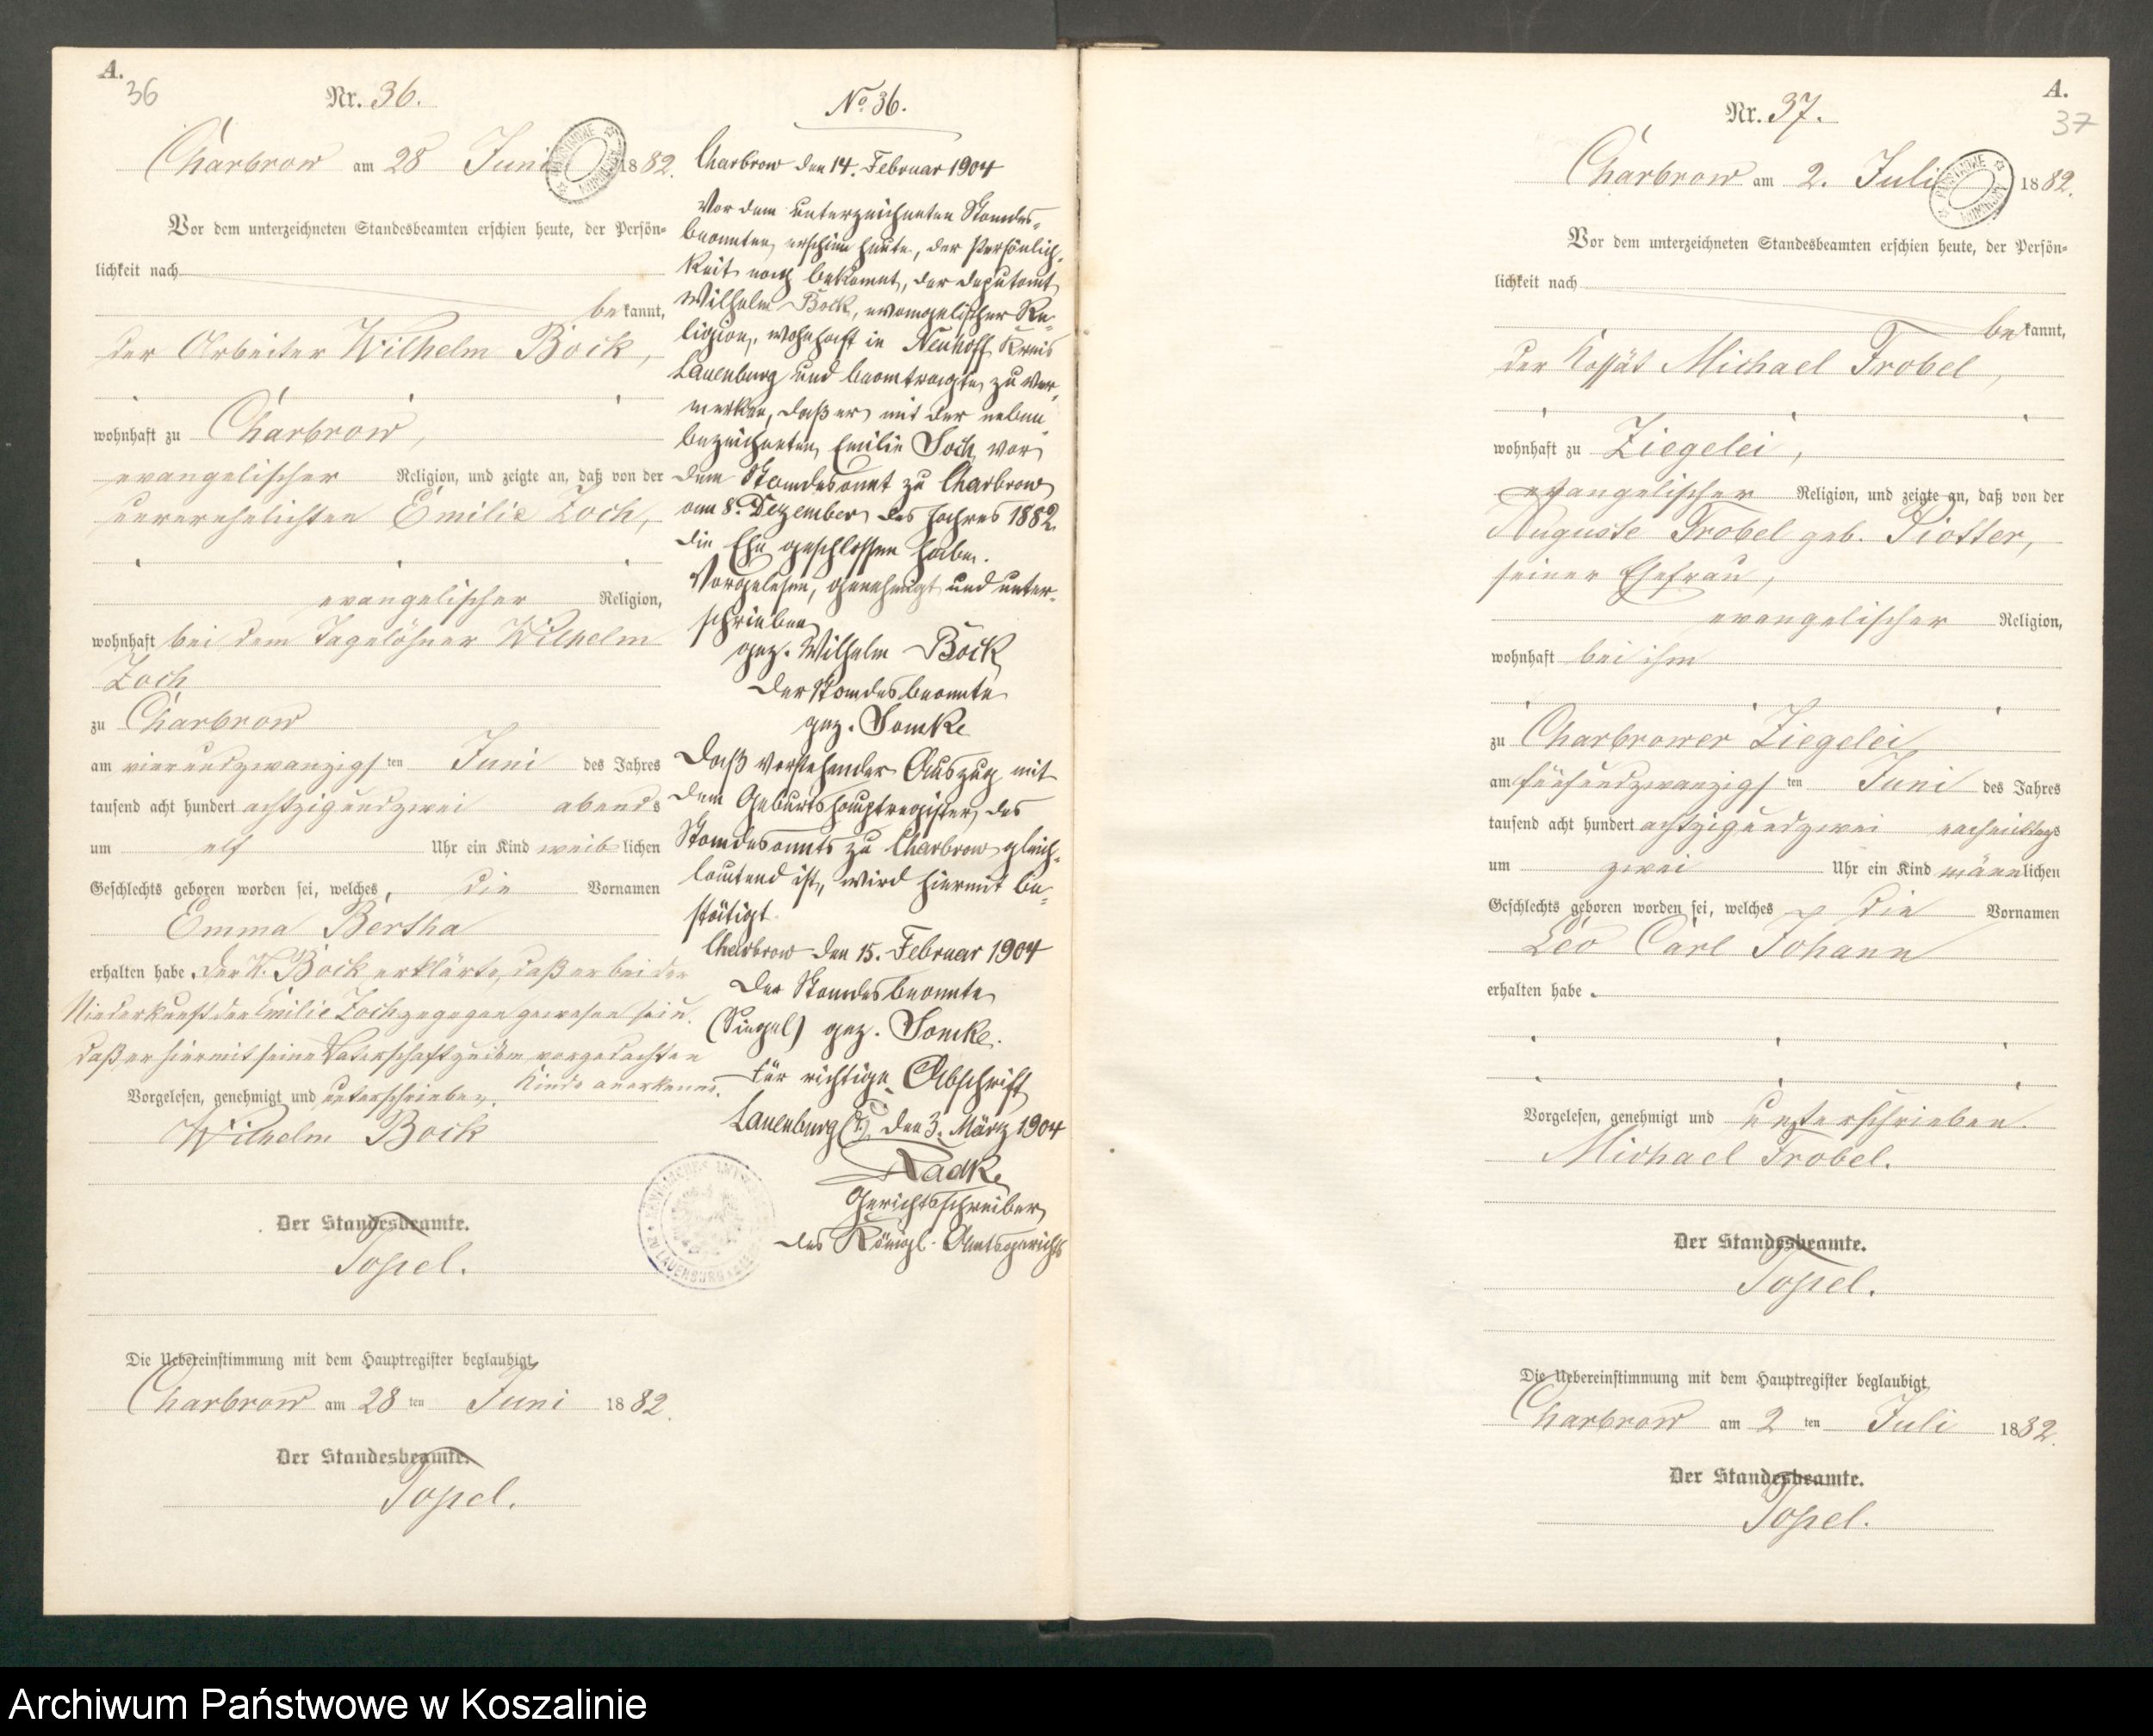 A.
36
Nr. 36.
Charbrow am 28 Juni 1882.
Vor dem unterzeichneten Standesbeamten erschien heute, der Persön-
lichkeit nach
bekannt,
der Arbeiter Wilhelm Bock,
wohnhaft zu Charbrow,
evangelischer Religion, und zeigte an, daß von der
unverehelichten Emilie Zoch,
evangelischer Religion,
wohnhaft bei dem Tagelöhner Wilhelm
Zoch
zu Charbrow
am vierundzwanzigsten Juni des Jahres
tausend acht hundert achtzigundzwei abends
um elf Uhr ein Kind weiblichen
Geschlechts geboren worden sei, welches, die Vornamen
Emma Bertha
erhalten habe. Der W. Bock erklärte, daß er bei der
Niederkunft der Emilie Zoch zugegen gewesen sei u.
daß er hiermit seine Vaterschaft zu dem vorgedachten
Kinde anerkenne.
Vorgelesen, genehmigt und unterschrieben.
Wilhelm Bock
Der Standesbeamte.
Topel.
Die Uebereinstimmung mit dem Hauptregister beglaubigt
Charbrow am 28 ten Juni 1882.
Der Standesbeamte.
Topel.
No 36.
Charbrow den 14. Februar 1904
Vor dem unterzeichneten Standes-
beamten erschien heute, der Persönlich-
keit nach bekannt, der Deputant
Wilhelm Bock, evangelischer Re-
ligion, wohnhaft in Neuhoff Kreis
Lauenburg und beantragte zu ver-
merken, daß er mit der neben-
bezeichneten Emilie Zoch vor
dem Standesamt zu Charbrow
am 8. Dezember des Jahres 1882
die Ehe geschlossen habe.
Vorgelesen, genehmigt und unter-
schrieben
gez. Wilhelm Bock
Der Standesbeamte
gez. Somke
Daß vorstehender Auszug mit
dem Geburtshauptregister des
Standesamts zu Charbrow gleich-
lautend ist, wird hiermit be-
stätigt.
Charbrow den 15. Februar 1904
Der Standesbeamte
(Siegel) gez. Somke.
Für richtige Abschrift
Lauenburg den 3. März 1904
Radke
Gerichtsschreiber
des Königl. Amtsgerichts
A.
37
Nr. 37.
Charbrow am 2. Juli 1882.
Vor dem unterzeichneten Standesbeamten erschien heute, der Persön-
lichkeit nach
bekannt,
der Kossät Michael Trobel,
wohnhaft zu Ziegelei,
evangelischer Religion, und zeigte an, daß von der
Auguste Trobel geb. Piotter,
seiner Ehefrau,
evangelischer Religion,
wohnhaft bei ihm
zu Charbrower Ziegelei
am fünfundzwanzigsten Juni des Jahres
tausend acht hundert achtzigundzwei nachmittags
um zwei Uhr ein Kind männlichen
Geschlechts geboren worden sei, welches die Vornamen
Leo Carl Johann
erhalten habe.
Vorgelesen, genehmigt und unterschrieben.
Michael Trobel.
Der Standesbeamte.
Topel.
Die Uebereinstimmung mit dem Hauptregister beglaubigt
Charbrow am 2 ten Juli 1882.
Der Standesbeamte.
Topel.
Archiwum Państwowe w Koszalinie